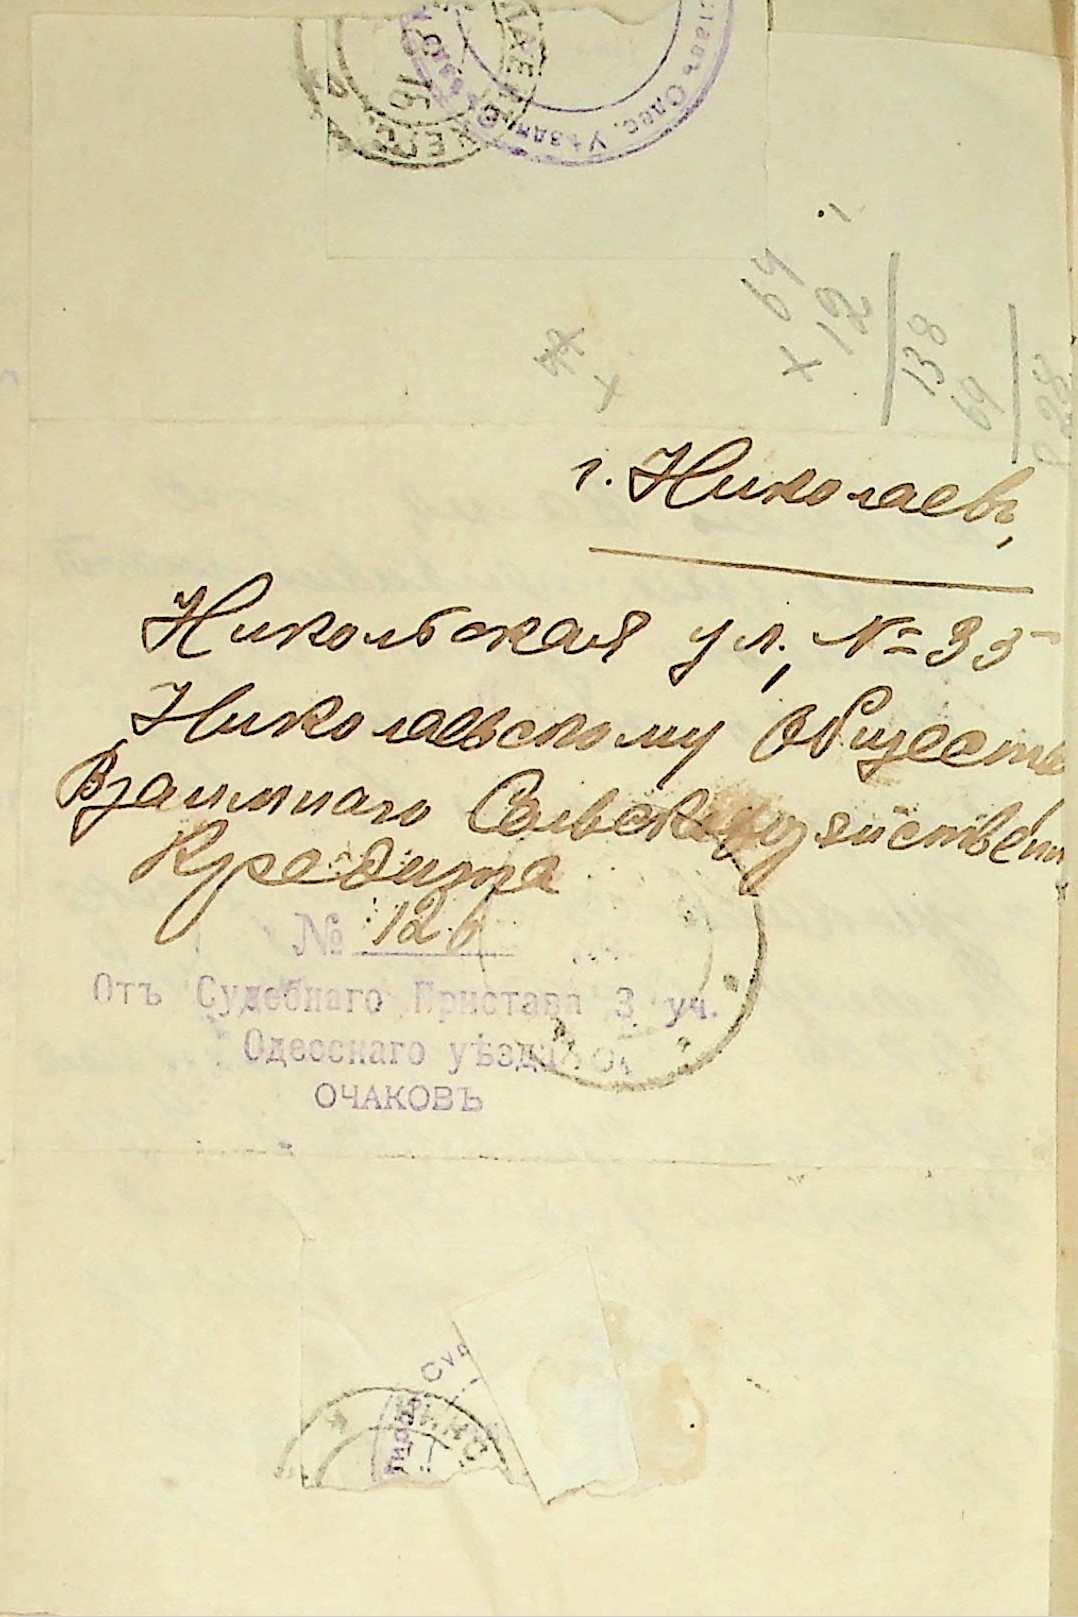 Одес. Уѣздн.
64
× 12
138
69
г. Николаевъ,
Никольская ул., № 35
Николаевскому Обществ
Взаимнаго Сельскохозяйствен
Кредита
№ 126
Отъ Судебнаго Пристава 3 уч.
Одесскаго уѣзда
ОЧАКОВЪ
Суд